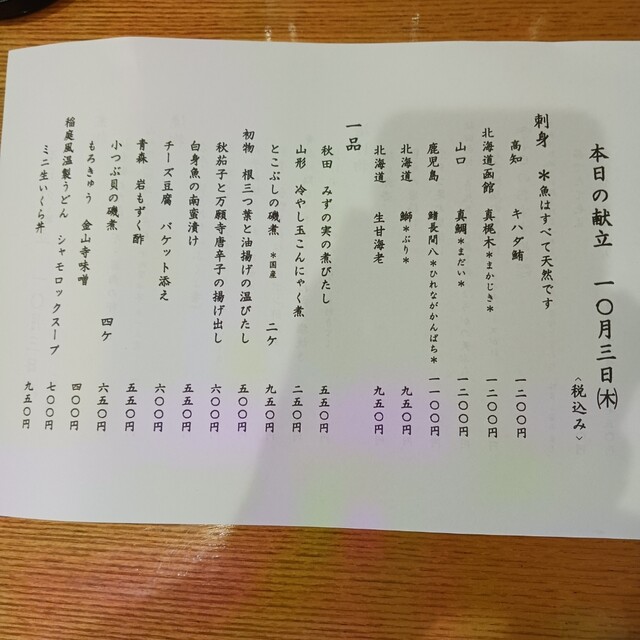 本日の献立　一〇月三日㈭
<税込み>
刺身　＊魚はすべて天然です
高知　キハダ鮪　一二〇〇円
北海道函館　真梶木＊まかじき＊　一二〇〇円
山口　真鯛＊まだい＊　一二〇〇円
鹿児島　鰭長間八＊ひれながかんぱち＊　一一〇〇円
北海道　鰤＊ぶり＊　九五〇円
北海道　生甘海老　九五〇円
一品
秋田　みずの実の煮びたし　五五〇円
山形　冷やし玉こんにゃく煮　二五〇円
とこぶしの磯煮　＊国産　二ケ　九五〇円
初物　根三つ葉と油揚げの温びたし　五〇〇円
秋茄子と万願寺唐辛子の揚げ出し　六〇〇円
白身魚の南蛮漬け　五五〇円
チーズ豆腐　バケット添え　六〇〇円
青森　岩もずく酢　五五〇円
小つぶ貝の磯煮　四ケ　六五〇円
もろきゅう　金山寺味噌　四〇〇円
稲庭風温製うどん　シャモロックスープ　七〇〇円
ミニ生いくら丼　九五〇円